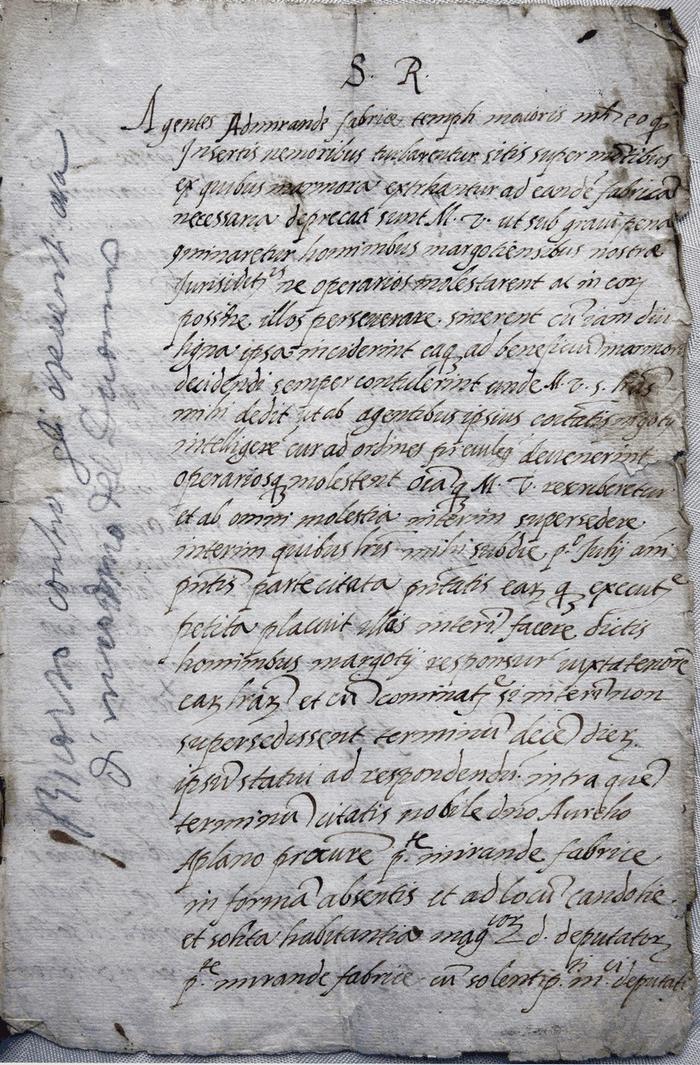 S. R.
Agentes Admirande fabrice templi maioris mli eo q
Insertis nemoribus turbarentur sitis super montibus
ex quibus marmora extrahantur ad eande fabrica
necessaria deprecati sunt M. v. ut sub gravi pena
hominibus margotiensibus nostre
ne operarios molestarent ac in
posse illos perseverare sinerent cu iam diu
ligna ipsa inciderint eaq ad beneficiu marmora
decidendi semper contulerint unde M. v. s. lris
mihi dedit ut ab agentibus ipsius
intelligere cur ad ordines previleg devenerint
operariosq molestent M. V. rescriberetur
et ab omni molestia interim supersedere
interim quibus lris mihi sub die p.º Julij
pntis parte citata earz q
petita placuit illas interi facere dictis
hominibus margotij responsur iuxta tenore
earz lrarz et cu cominat si interi non
supersedissent terminu dece dierz
ipsu statui ad respondendu intra que
terminu citatis nobile dno Aurelio
Aplano procure p.te mirande fabrice
in forma absentis et ad locu candolie
et solita habitantia mag.corz d. deputatorz
p.te mirande fabrice cu solenti p. deputat
Ricorso contro gli
del Duomo